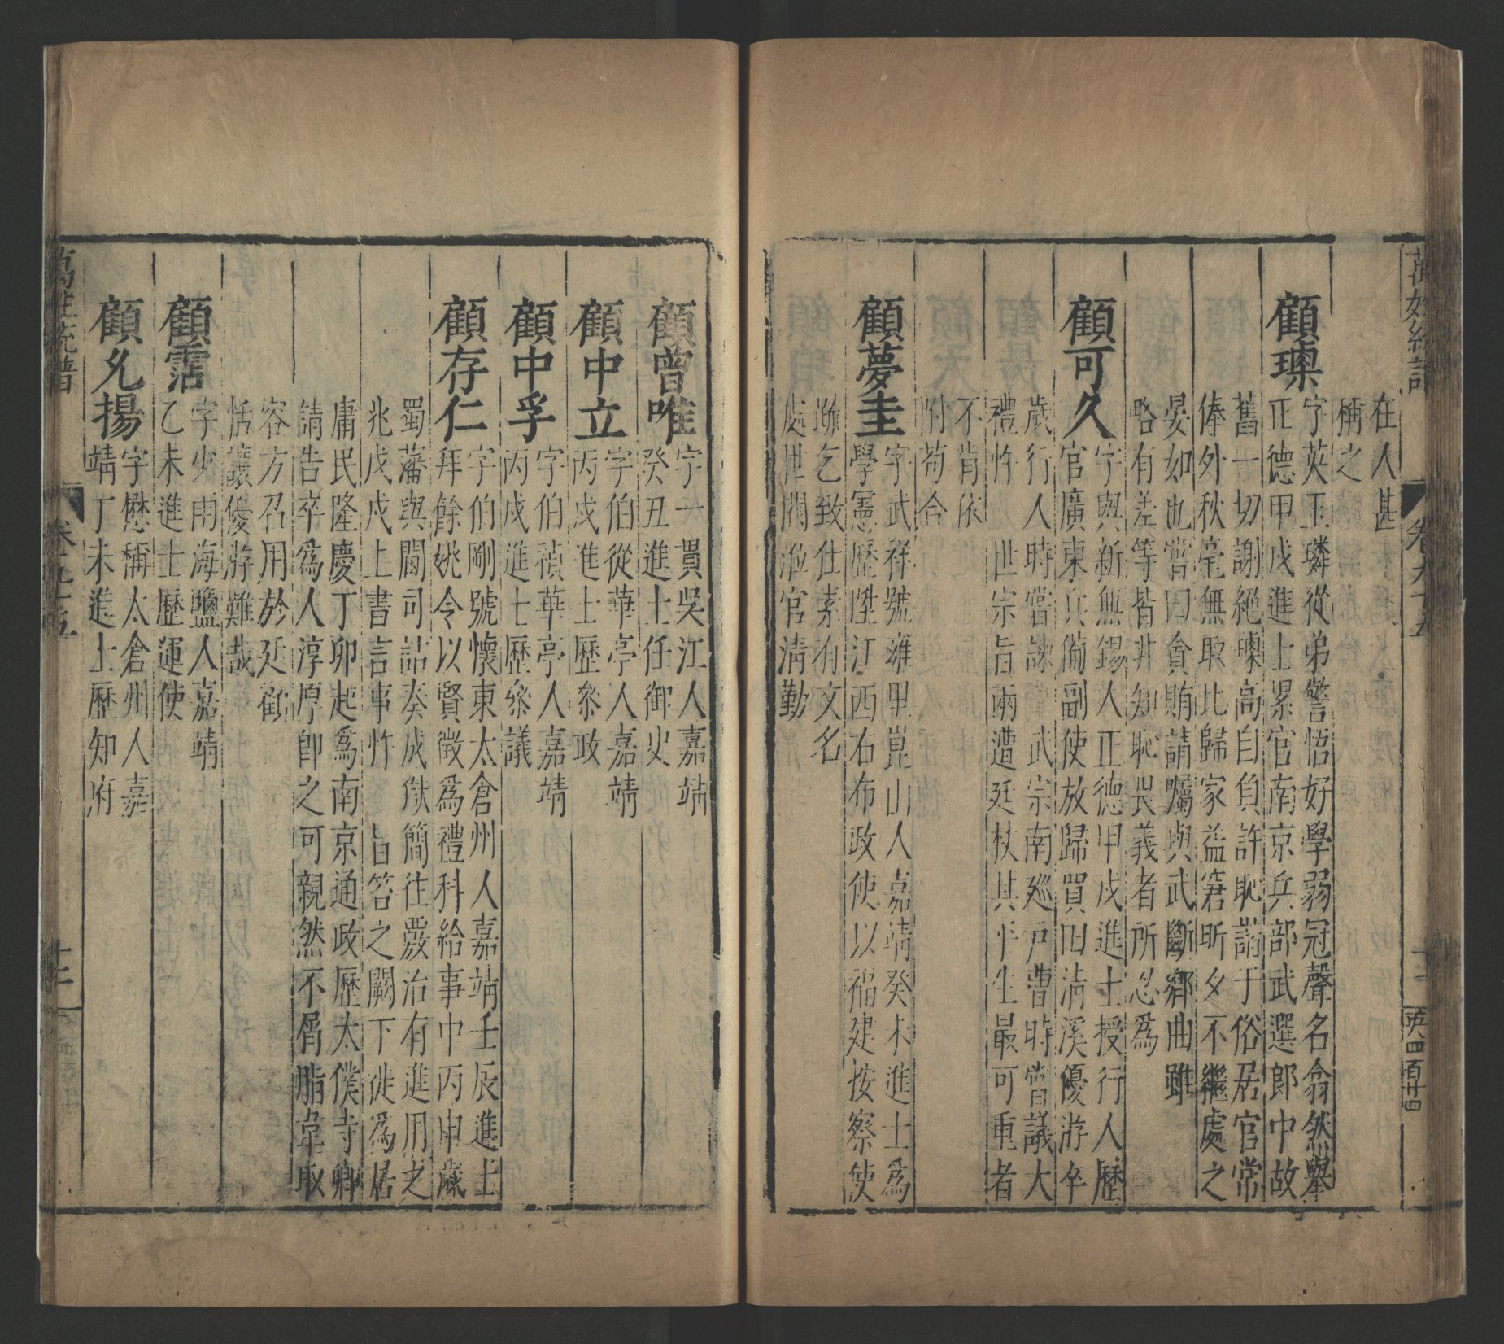 在人甚
稱之
顧璵
字英玉璘從弟警悟好學弱冠聲名翕然舉
正德甲戌進士累官南京兵部武選郎中故
舊一切謝絕璵高自負許恥諧于俗居官常
俸外秋毫無取比歸家益窘昕夕不繼處之
晏如也嘗曰貪賄請囑與武斷鄉曲雖
略有差等皆非知恥畏義者所忍爲
顧可久
字與新無錫人正德甲戌進士授行人歷
官廣東兵備副使放歸買田清溪優游卒
歲行人時嘗諫 武宗南廵戶曹時嘗議大
禮忤 世宗旨兩遭廷杖其平生最可重者
不肯依
附苟合
顧夢圭
字武祥號雍里崑山人嘉靖癸未進士爲
學憲歷陞江西右布政使以福建按察使
移乞致仕素有文名
處世閒澹官清勤
顧曾唯
字一貫吳江人嘉靖
癸丑進士任御史
顧中立
字伯從華亭人嘉靖
丙戌進士歷參政
顧中孚
字伯禎華亭人嘉靖
丙戌進士歷參議
顧存仁
字伯剛號懷東太倉州人嘉靖壬辰進士
拜餘姚令以賢徵爲禮科給事中丙申歲
蜀藩與閫司詰奏成獄簡往覈治有進用之
兆戊戌上書言事忤 旨笞之闕下徙爲居
庸民隆慶丁卯起爲南京通政歷太僕寺卿
請告卒爲人淳厚卽之可親然不屑脂韋取
容方召用於廷歡
恬讓優游難哉
顧霑
字火雨海鹽人嘉靖
乙未進士歷運使
顧允揚
字懋稱太倉州人嘉
靖丁未進士歷知府